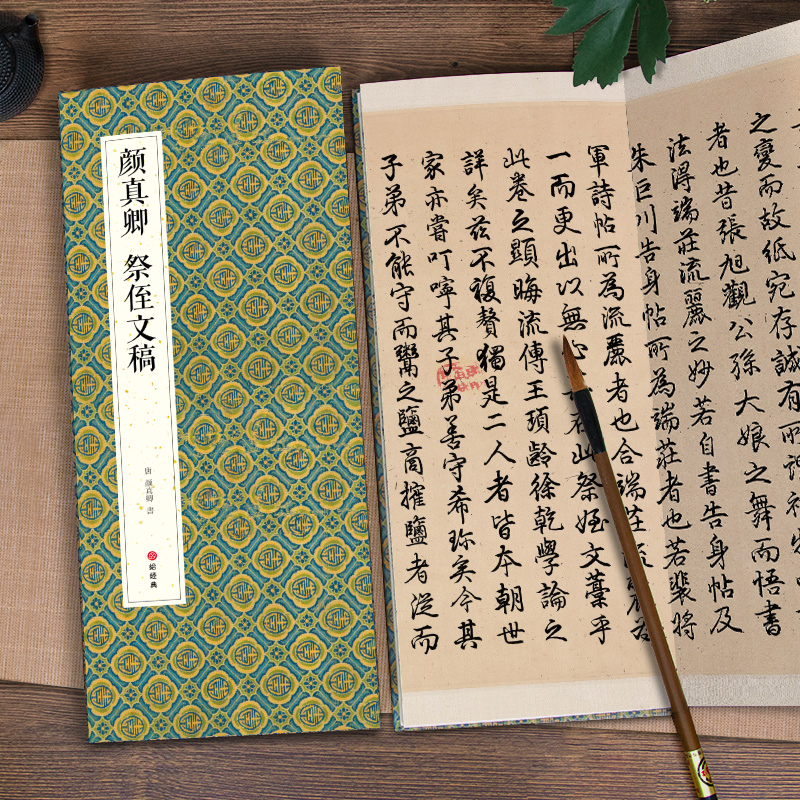 颜真卿 祭侄文稿
唐 颜真卿 書
经典
之變而故紙宛存誠有所謂神
者也昔張旭觀公孫大娘之舞而悟書
法得端莊流麗之妙若自書告身帖及
朱巨川告身帖所為端莊者也若裴將
軍詩帖所為流麗者也合端莊流麗若
一而更出以無心 若此祭姪文藁乎
此卷之顯晦流傳王頊齡徐乾學論之
詳矣茲不複贅獨是二人者皆本朝世
家亦嘗叮嚀其子弟善守希珍矣今其
子弟不能守而鬻之鹽商擁鹽者從而